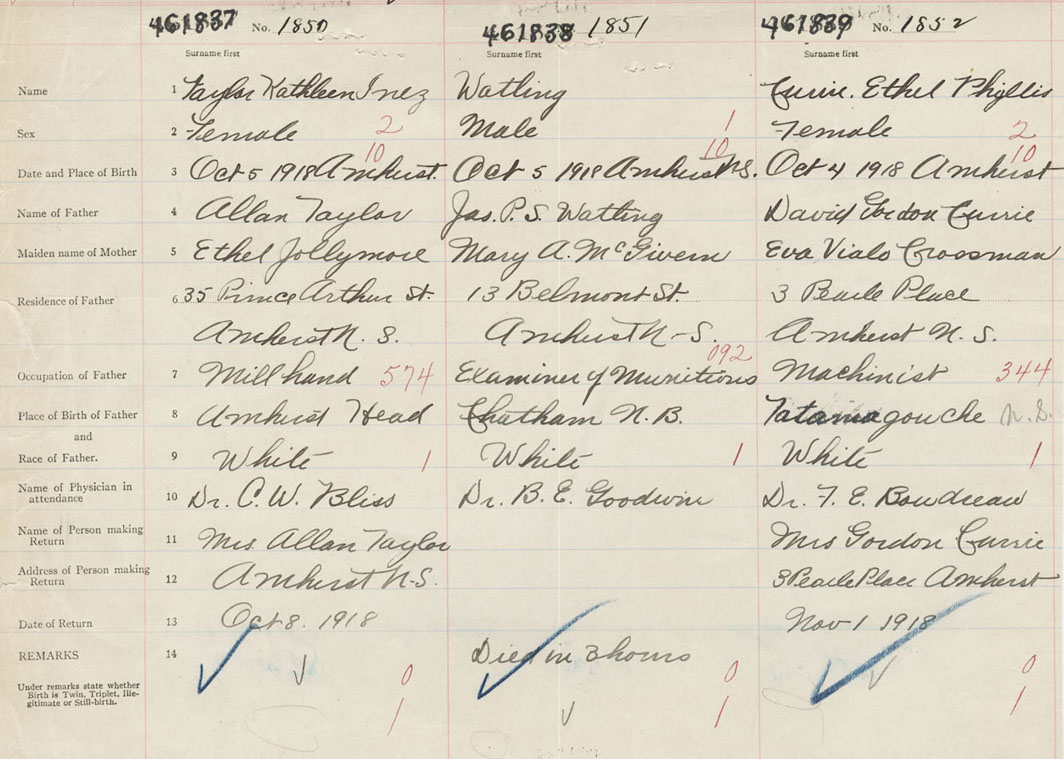 461837 No. 1850 461838 1851 461839 No. 1852
Surname first Surname first Surname first
Name 1 Taylor Kathleen Inez Watling Currie. Ethel Phyllis
Sex 2 Female 2 Male 1 Female 2
10 10 10
Date and Place of Birth 3 Oct 5 1918 Amherst. Oct 5 1918 Amherst N.S. Oct 4 1918 Amherst
Name of Father 4 Allan Taylor Jas. P. S. Watling David Gordon Currie
Maiden name of Mother 5 Ethel Jollymore Mary A. McGivern Eva Viale Crossman
Residence of Father 6 35 Prince Arthur St. 13 Belmont St. 3 Pearle Place
Amherst N. S. Amherst N-S. Amherst N. S.
092
Occupation of Father 7 Mill hand 574 Examiner of Munitions Machinist 344
Place of Birth of Father 8 Amherst Head Chatham N.B. Tatamagouche N.S.
and
Race of Father. 9 White 1 White 1 White 1
Name of Physician in
attendance 10 Dr. C. W. Bliss Dr. B. E. Goodwin Dr. F. E. Boudreau
Name of Person making
Return 11 Mrs. Allan Taylor Mrs Gordon Currie
Address of Person making
Return 12 Amherst N-S. 3 Pearle Place Amherst
Date of Return 13 Oct 8. 1918 Nov 1 1918
REMARKS 14 Died in 3 hours
0 0 0
Under remarks state whether
Birth is Twin, Triplet, Ille-
gitimate or Still-birth.
1 1 1